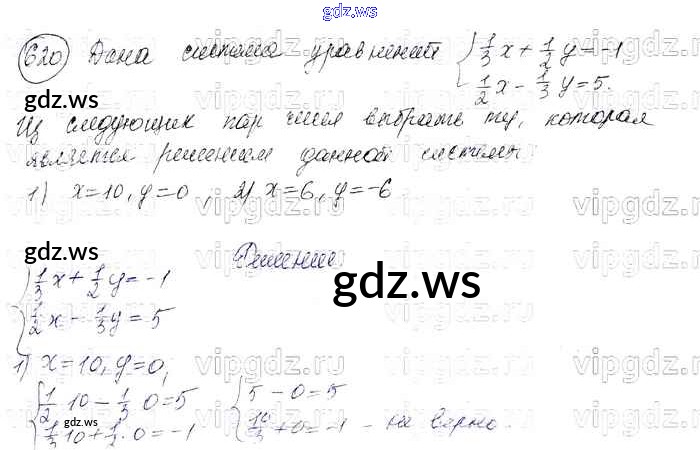 gdz.ws
620) Дана система уравнений { 1/3 x + 1/2 y = -1
1/2 x - 1/3 y = 5.
gdz.ws
Из следующих пар чисел выбрать ту, которая
является решением данной системы
1) x=10, y=0, 2) x=6, y=-6
gdz.ws
Решение
{ 1/3 x + 1/2 y = -1
gdz.ws
1/2 x - 1/3 y = 5
1) x=10, y=0,
{ 1/2 · 10 - 1/3 · 0 = 5 { 5 - 0 = 5
gdz.ws
1/3 · 10 + 1/2 · 0 = -1 10/3 + 0 = -1 - не верно.
vipgdz.ru